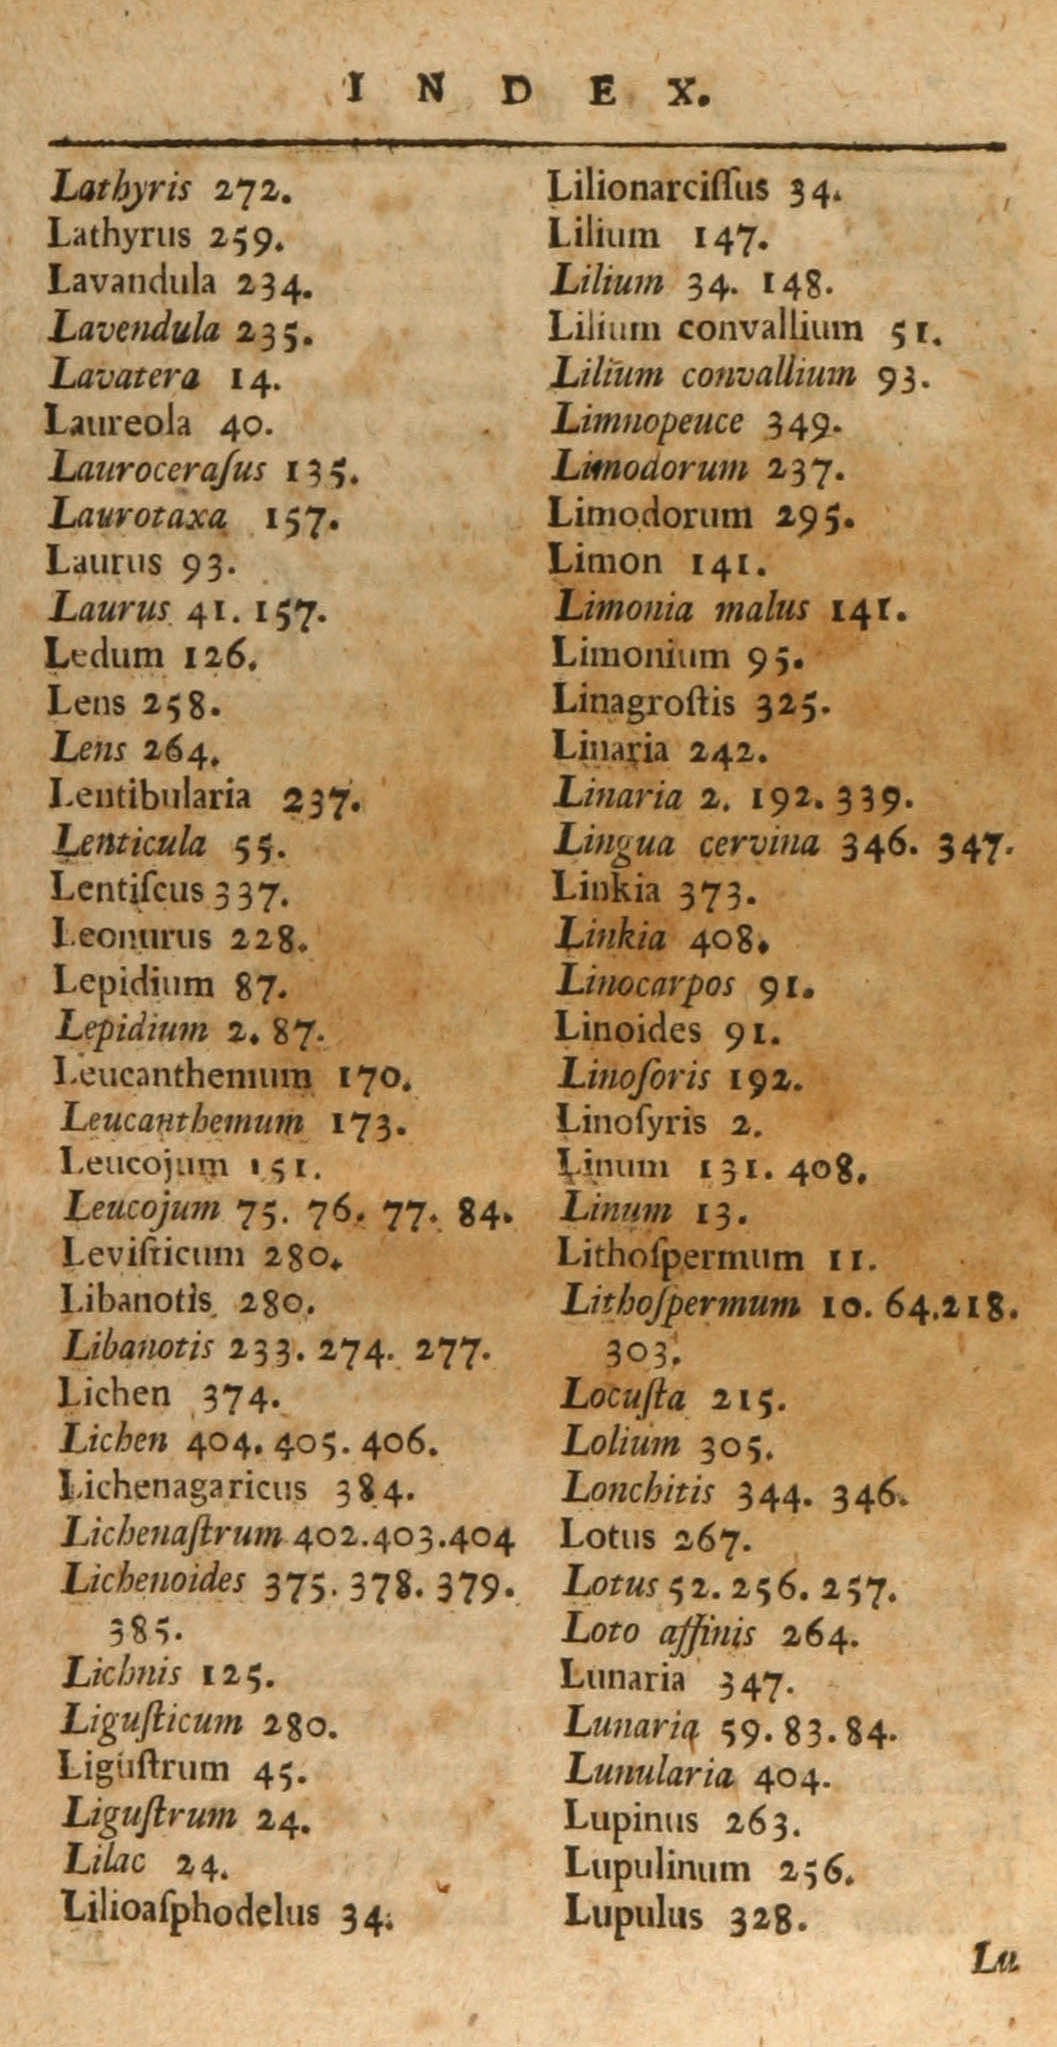 INDEX.
Lathyris 272.
Lathyrus 259.
Lavandula 234.
Lavendula 235.
Lavatera 14.
Laureola 40.
Lauroceraſus 135.
Laurotaxa 157.
Laurus 93.
Laurus 41. 157.
Ledum 126.
Lens 258.
Lens 264.
Lentibularia 237.
Lenticula 55.
Lentiſcus 337.
Leonurus 228.
Lepidium 87.
Lepidium 2. 87.
Leucanthemum 170.
Leucanthemum 173.
Leucojum 151.
Leucojum 75. 76. 77. 84.
Leviſticum 280.
Libanotis 280.
Libanotis 233. 274. 277.
Lichen 374.
Lichen 404. 405. 406.
Lichenagaricus 384.
Lichenaſtrum 402.403.404
Lichenoides 375. 378. 379.
385.
Lichnis 125.
Liguſticum 280.
Liguſtrum 45.
Liguſtrum 24.
Lilac 24.
Lilioaſphodelus 34.
Lilionarciſſus 34.
Lilium 147.
Lilium 34. 148.
Lilium convallium 51.
Lilium convallium 93.
Limnopeuce 349.
Limodorum 237.
Limodorum 295.
Limon 141.
Limonia malus 141.
Limonium 95.
Linagroſtis 325.
Linaria 242.
Linaria 2. 192. 339.
Lingua cervina 346. 347.
Linkia 373.
Linkia 408.
Linocarpos 91.
Linoides 91.
Linoſoris 192.
Linoſyris 2.
Linum 131. 408.
Linum 13.
Lithoſpermum 11.
Lithoſpermum 10. 64.218.
303.
Locuſta 215.
Lolium 305.
Lonchitis 344. 346.
Lotus 267.
Lotus 52. 256. 257.
Loto affinis 264.
Lunaria 347.
Lunaria 59. 83. 84.
Lunularia 404.
Lupinus 263.
Lupulinum 256.
Lupulus 328.
Lu